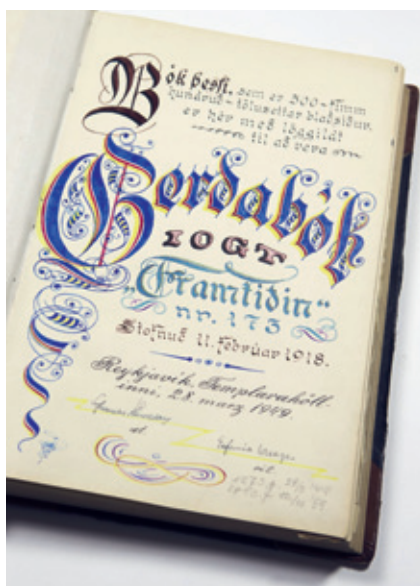 Bók þessi, sem er 500-fimm
hundruð-tölusettar blaðsíður,
er hér með löggilt
til að vera
Gerðabók
IOGT
„Framtíðin“
nr. 173
Stofnuð 11. febrúar 1918.
Reykjavík, Templarahöll-
inni, 28. marz 1949.